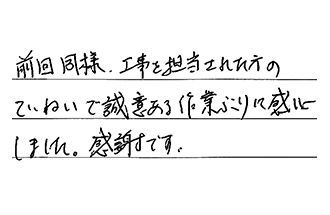 前回同様、工事を担当された方の
ていねいで誠意ある作業ぶりに感心
しました。感謝です。